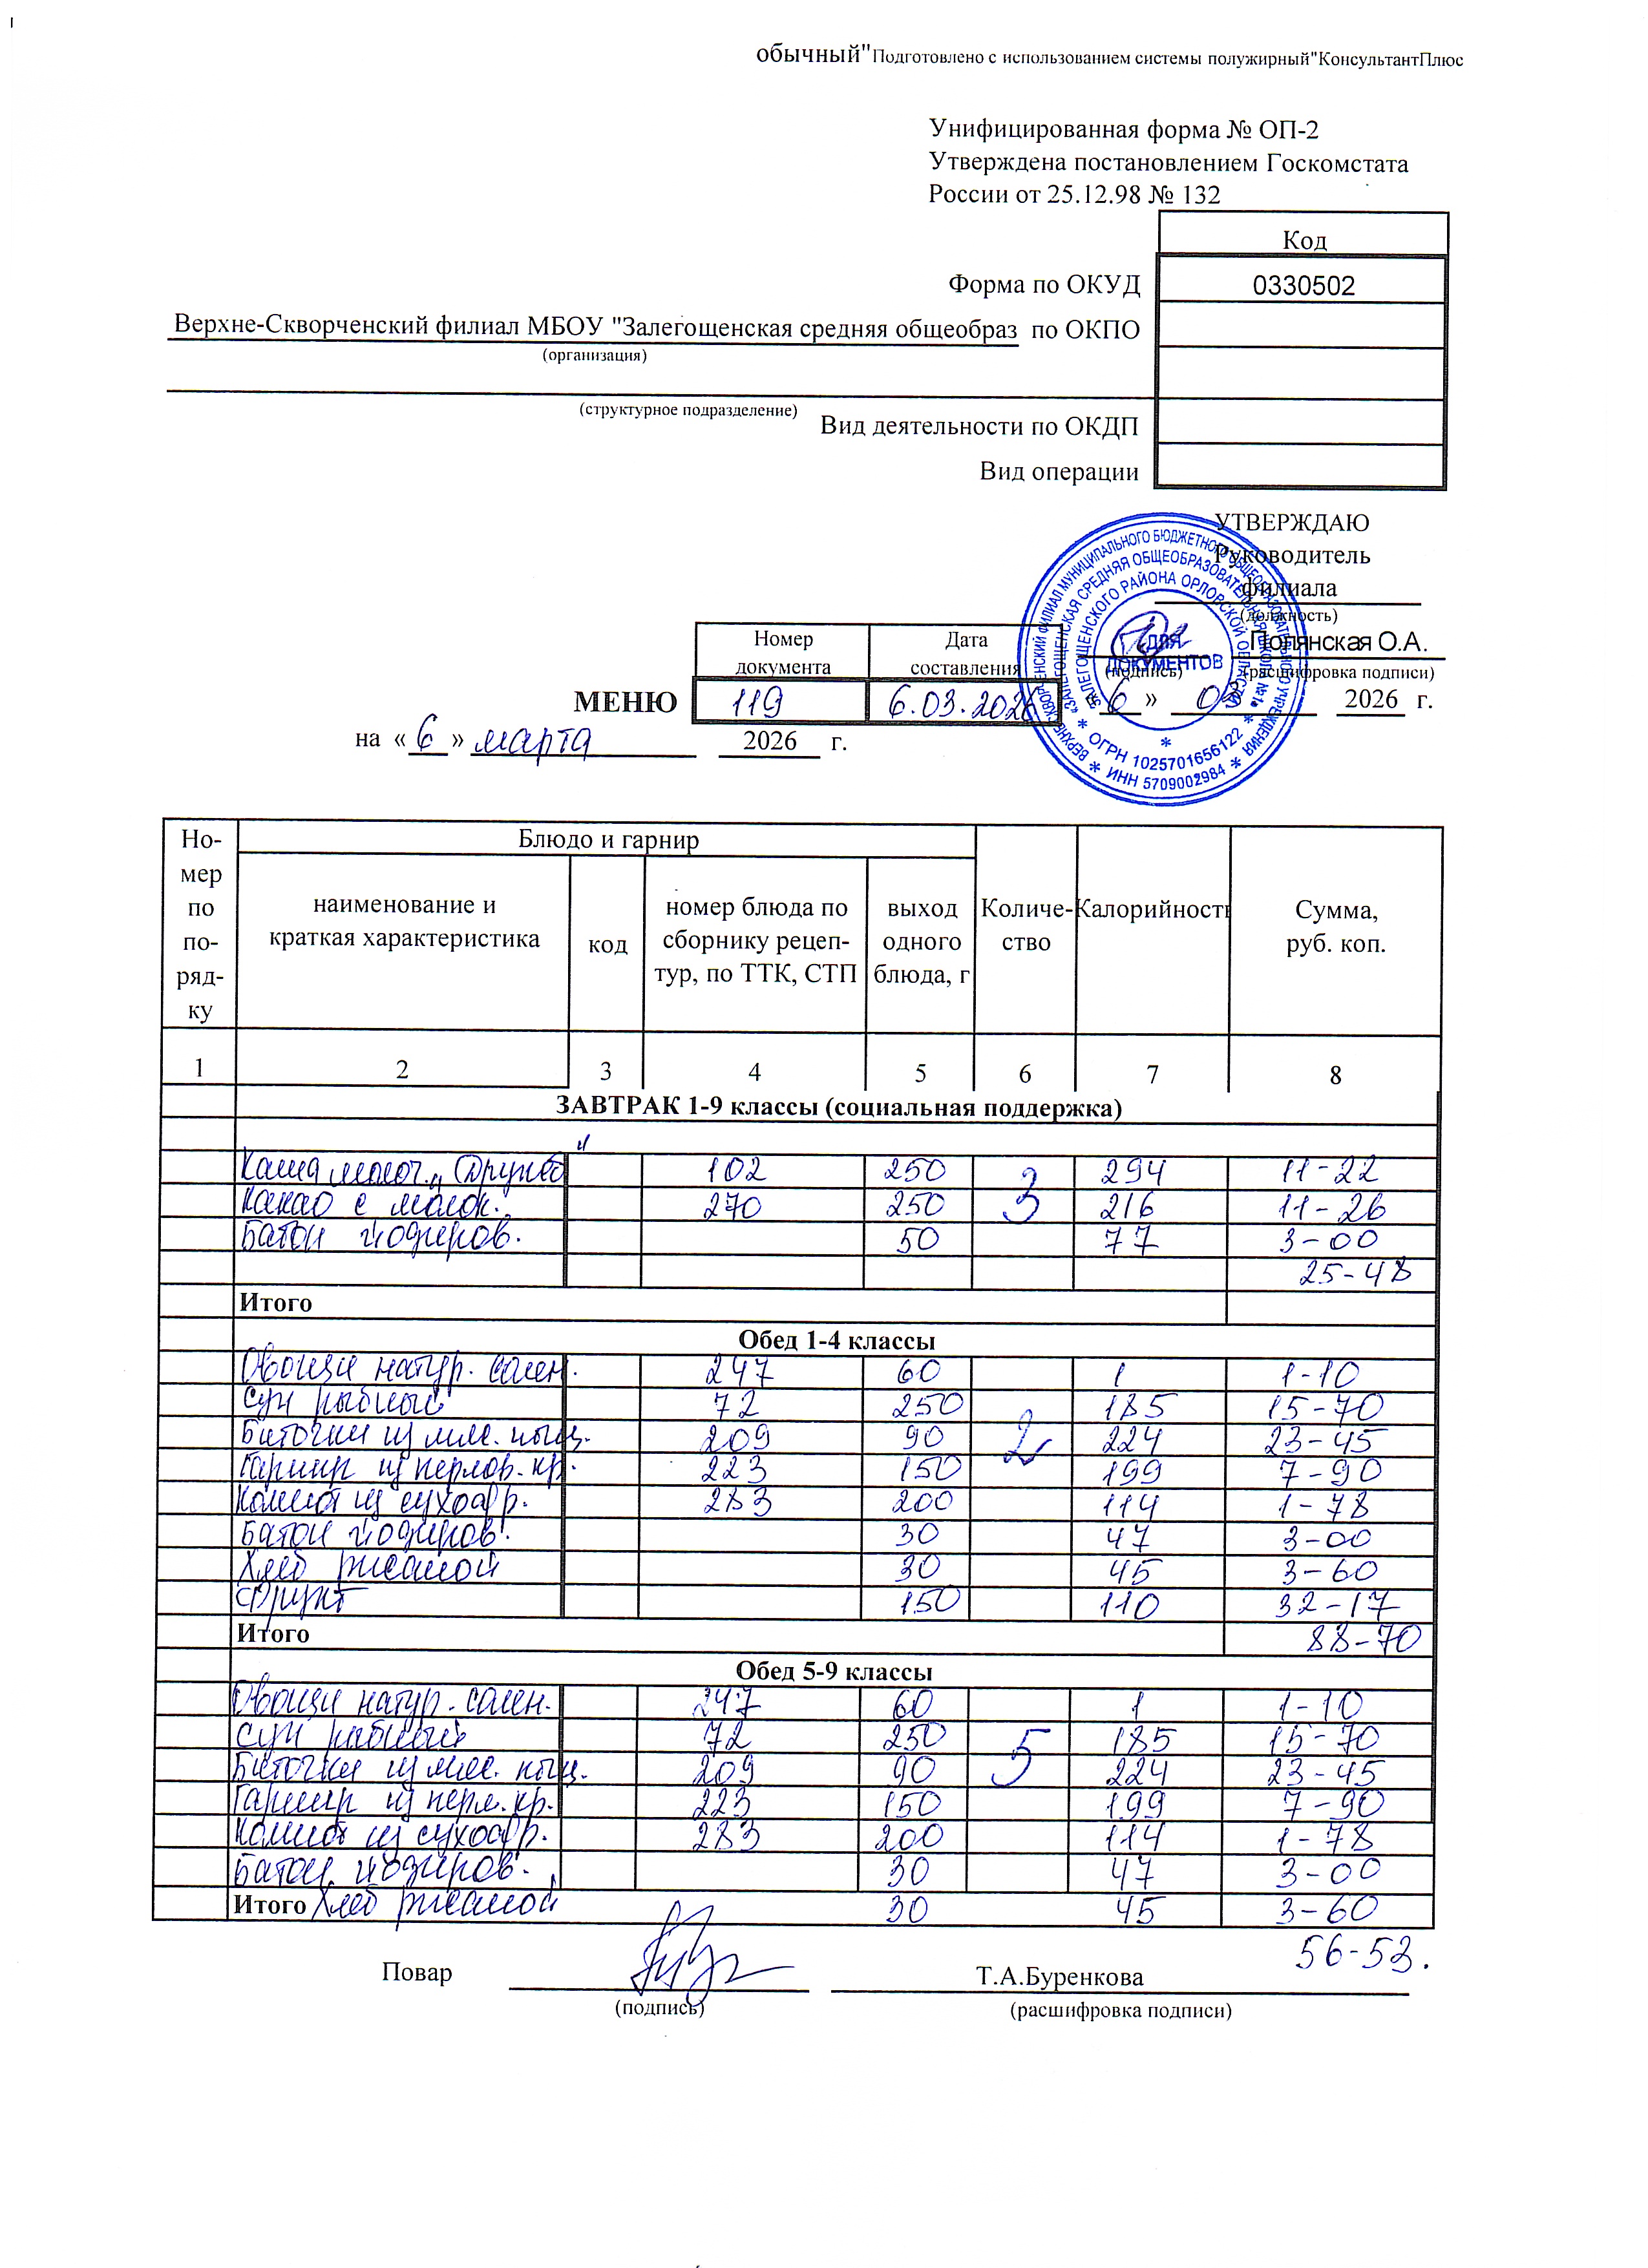 обычный"Подготовлено с использованием системы полужирный"КонсультантПлюс
Унифицированная форма № ОП-2
Утверждена постановлением Госкомстата
России от 25.12.98 № 132
Код
Форма по ОКУД 0330502
Верхне-Скворченский филиал МБОУ "Залегощенская средняя общеобраз по ОКПО
(организация)
(структурное подразделение)
Вид деятельности по ОКДП
Вид операции
УТВЕРЖДАЮ
Руководитель
филиала
(должность)
Полянская О.А.
(подпись) (расшифровка подписи)
«6» 03 2026 г.
ДЛЯ
ДОКУМЕНТОВ
ЗАЛЕГОЩЕНСКОГО РАЙОНА ОРЛОВСКОЙ ОБЛАСТИ
* ОГРН 1025701656122 *
* ИНН 5709002984 *
Номер документа Дата составления
МЕНЮ 119 6.03.2026
на «6» марта 2026 г.
Но-мер по по-ряд-ку Блюдо и гарнир Количе-ство Калорийность Сумма, руб. коп.
наименование и краткая характеристика код номер блюда по сборнику рецеп-тур, по ТТК, СТП выход одного блюда, г
1 2 3 4 5 6 7 8
ЗАВТРАК 1-9 классы (социальная поддержка)
Каша молоч. „Дружба" 102 250 294 11-22
Какао с молок. 270 250 3 216 11-26
Батон йодиров. 50 77 3-00
25-48
Итого
Обед 1-4 классы
Овощи натур. солен. 247 60 1 1-10
Суп рыбный 72 250 185 15-70
Биточки из мяс. пыц. 209 90 2 224 23-45
Гарнир из перлов. кр. 223 150 199 7-90
Компот из сухофр. 283 200 114 1-78
Батон йодиров. 30 47 3-00
Хлеб ржаной 30 45 3-60
Фрукт 150 110 32-17
Итого 88-70
Обед 5-9 классы
Овощи натур. солен. 247 60 1 1-10
Суп рыбный 72 250 185 15-70
Биточки из мяс. пыц. 209 90 5 224 23-45
Гарнир из перл. кр. 223 150 199 7-90
Компот из сухофр. 283 200 114 1-78
Батон йодиров. 30 47 3-00
Итого Хлеб ржаной 30 45 3-60
56-53.
Повар Т.А.Буренкова
(подпись) (расшифровка подписи)